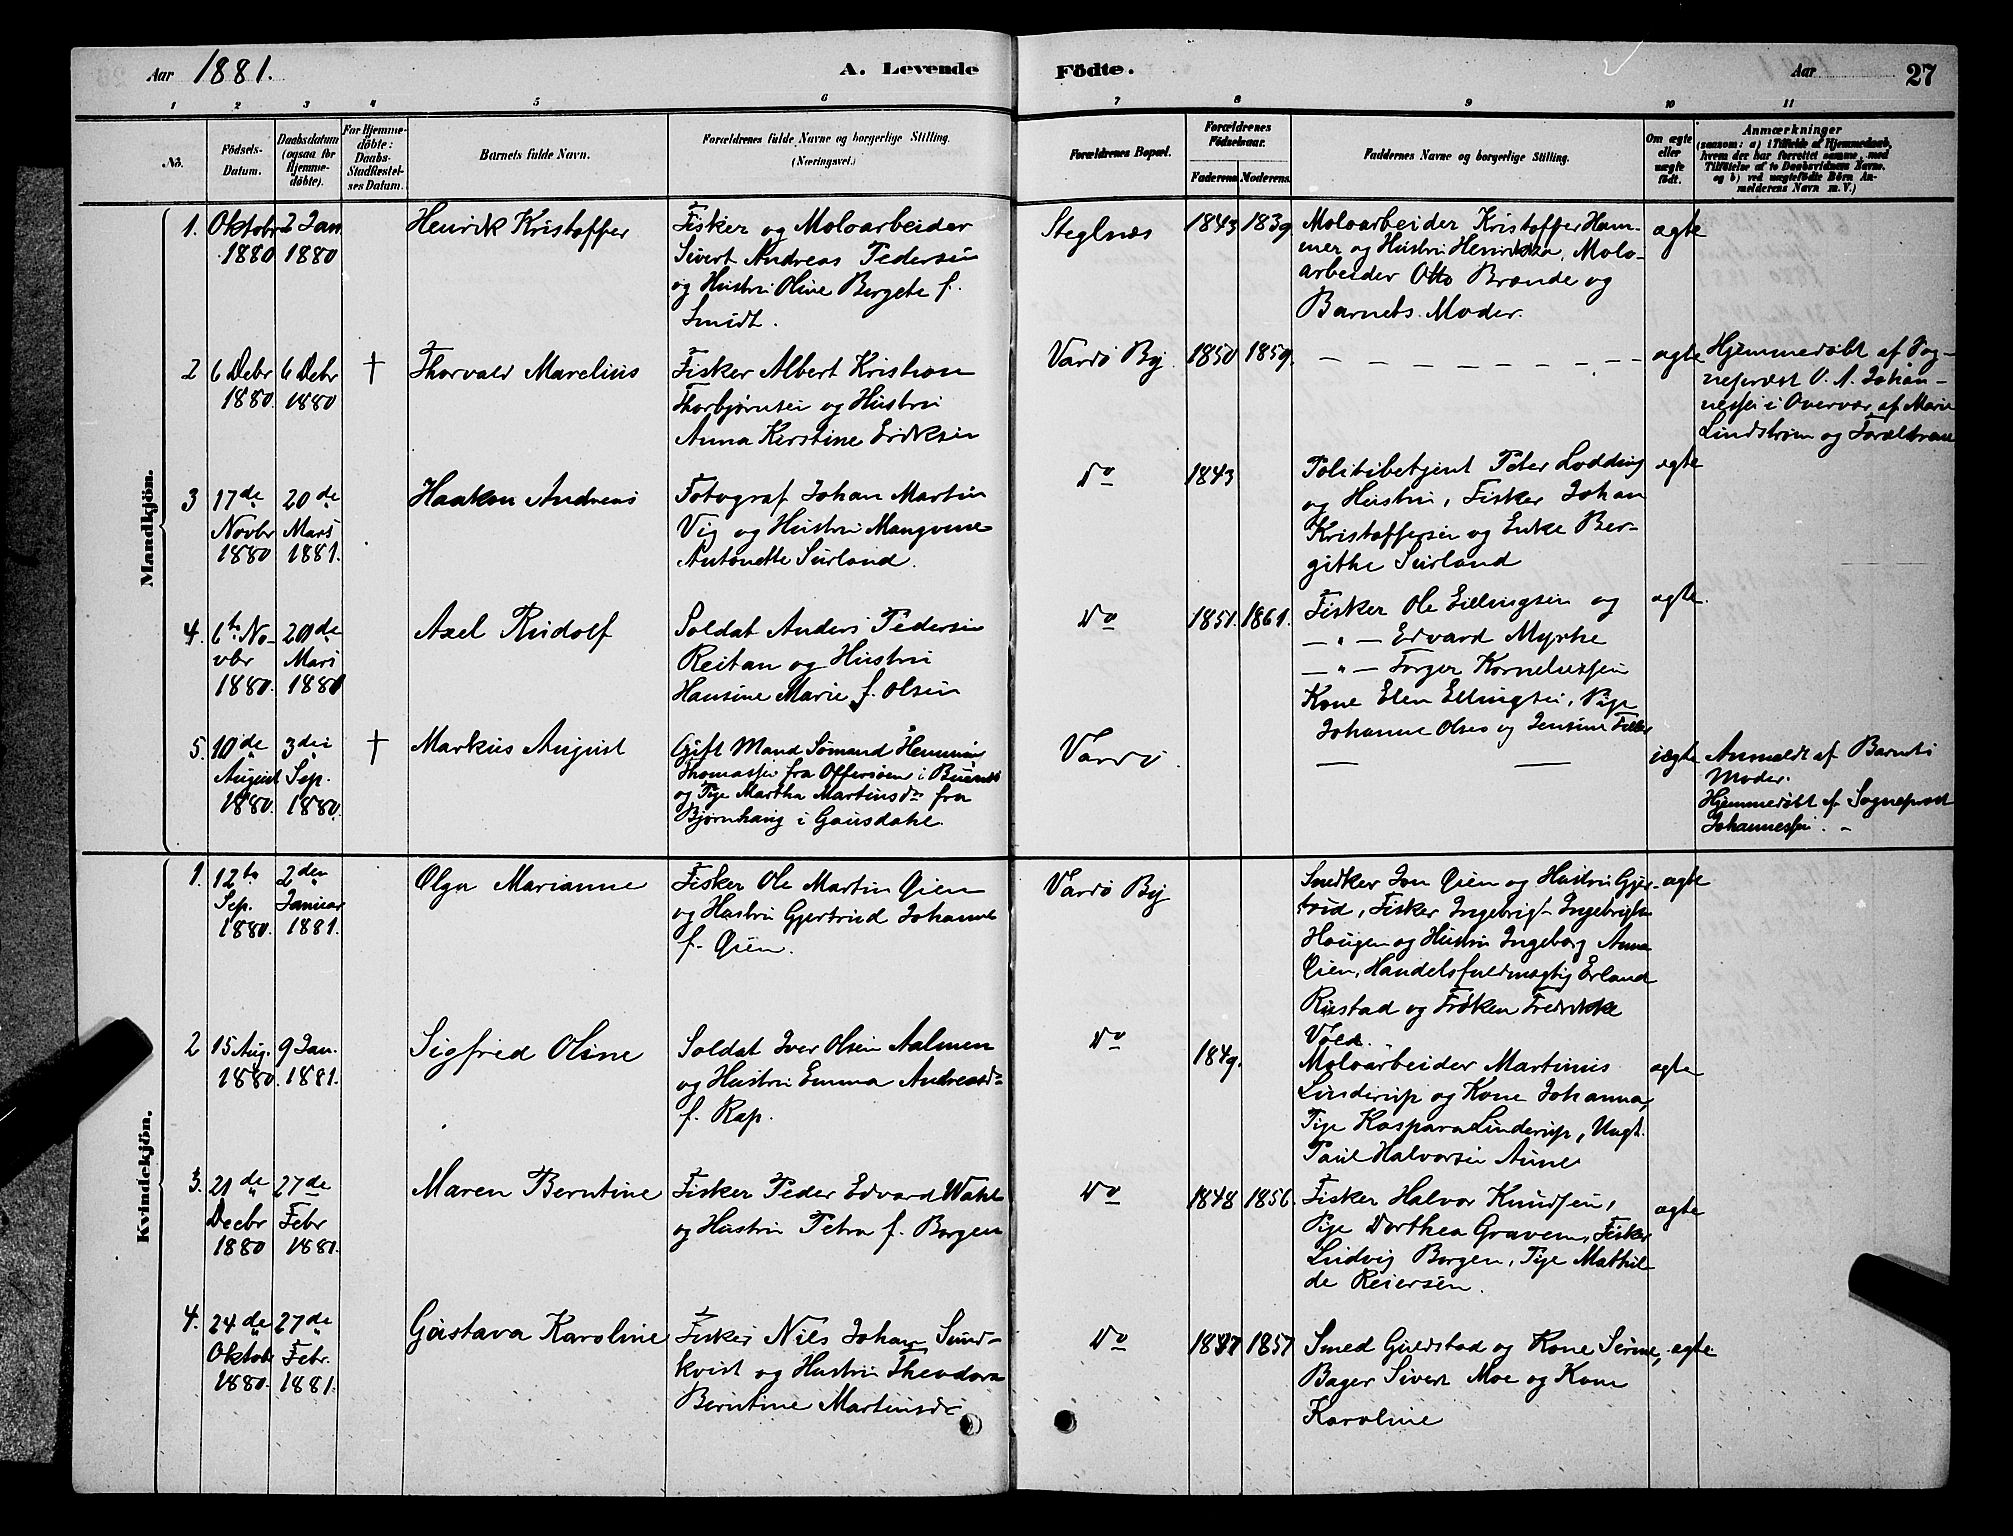 Aar 1881. A. Levende Födte. Aar 27
1 2 3 4 5 6 7 8 9 10 11
No. Födsels-Datum. Daabsdatum (ogsaa for Hjemme-döbte). For Hjemme-döbte: Daabs-Stadfæstel-ses Datum. Barnets fulde Navn. Forældrenes fulde Navne og borgerlige Stilling. (Næringsvei.) Forældrenes Bopæl. Forældrenes Födselsaar. Faderens Moderens. Faddernes Navne og borgerlige Stilling. Om ægte eller uægte födt. Anmærkninger (saasom: a) i Tilfælde af Hjemmedaab, hvem der har forrettet samme, med Tilföielse af to Daabsvidners Navne, og b) ved uægtefödte Börn An-melderens Navn m. V.)
Mandkjön.
1. Oktobr 1880 2 Jan 1880 Henrik Kristoffer
Fisker og Moloarbeider
Sivert Andreas Pedersen
og Hustru Oline Bergete f.
Smidt.
Steglnæs 1843 1839
Moloarbeider Kristoffer Ham-
mer og Hustru Henrikka, Molo-
arbeider Otto Brænde og
Barnets Moder.
ægte
2 6 Debr 1880. 6 Debr 1880 † Thorvald Marelius
Fisker Albert Kristian
Thorbjørnsen og Hustru
Anna Kirstine Eriksen
Vardö By 1850 1859.
ægte
Hjemmedöbt af Sog-
nepræst O. A. Johan-
nessen i Overvær af Marie
Lindstrøm og Forældrene
3 17de Novbr 1880 20de Mars 1881. Haakon Andreas
Fotograf Johan Martin
Vig og Hustru Mangvine
Antonette Surland.
Do 1843
Politibetjent Peter Lodding
og Hustru, Fisker Johan
Kristoffersen og Enke Ber-
githe Surland
ægte
4. 6te No-vbr 1880. 20de Mars 1881 Axel Rudolf
Soldat Anders Pedersen
Reitan og Hustru
Hansine Marie f. Olsen
Do 1851. 1861.
Fisker Ole Ellingsen og
— " — Edvard Myrhe
— " — Torger Korneliussen
Kone Elen Ellingsen, Pige
Johanne Olsen og Jensine
ægte.
5. 10de August 1880. 3die Sep. 1880. † Markus August
Gift Mand Sømand Henning
Thomassen fra Offersøen i
og Pige Martha Martinsdr fra
Bjørnhaug i Gausdahl.
Vardö.
uægte
Anmeldt af Barnets
Moder.
Hjemmedöbt af Sognepræst
Johannessen.
Kvindekjön.
1. 12te Sep. 1880. 2den Januar 1881. Olga Marianne
Fisker Ole Martin Øien
og Hustru Gjertrud Johanne
f. Øien.
Vardö By
Snedker Jon Øien og Hustru Gjer-
trud, Fisker Ingebrigt Ingebrigtsen
Haugen og Hustru Ingeborg Anna
Øien, Handelsfuldmægtig Erland
Rustad og Frøken Fredrikke
Vold.
ægte
2 15 Aug. 1880. 9 Jan. 1881. Sigfred Oline
Soldat Iver Olsen Aalmen
og Hustru Emma Andreasdr
f. Rap.
Do 1849.
Moloarbeider Martinus
Linderup og Kone Johanna,
Pige Kaspara Linderup, Ungk.
Paul Halvorsen Aune
ægte
3. 21de Decbr 1880 27de Febr 1881. Maren Berntine
Fisker Peder Edvard Wahl
og Hustru Petra f. Borgen
Do 1848 1856.
Fisker Halvor Knudsen,
Pige Dorthea Graven, Fisker
Ludvig Borgen, Pige Mathil
de Reiersen.
ægte
4. 24de Oktobr 1880. 27de Febr. 1881. Gustava Karoline
Fisker Nils Johan Sund-
kvist og Hustru Theodora
Berntine Martinsdr
Do 1847 1857
Smed Guldstad og Kone Sirine,
Bager Sivert Moe og Kone
Karoline
ægte.